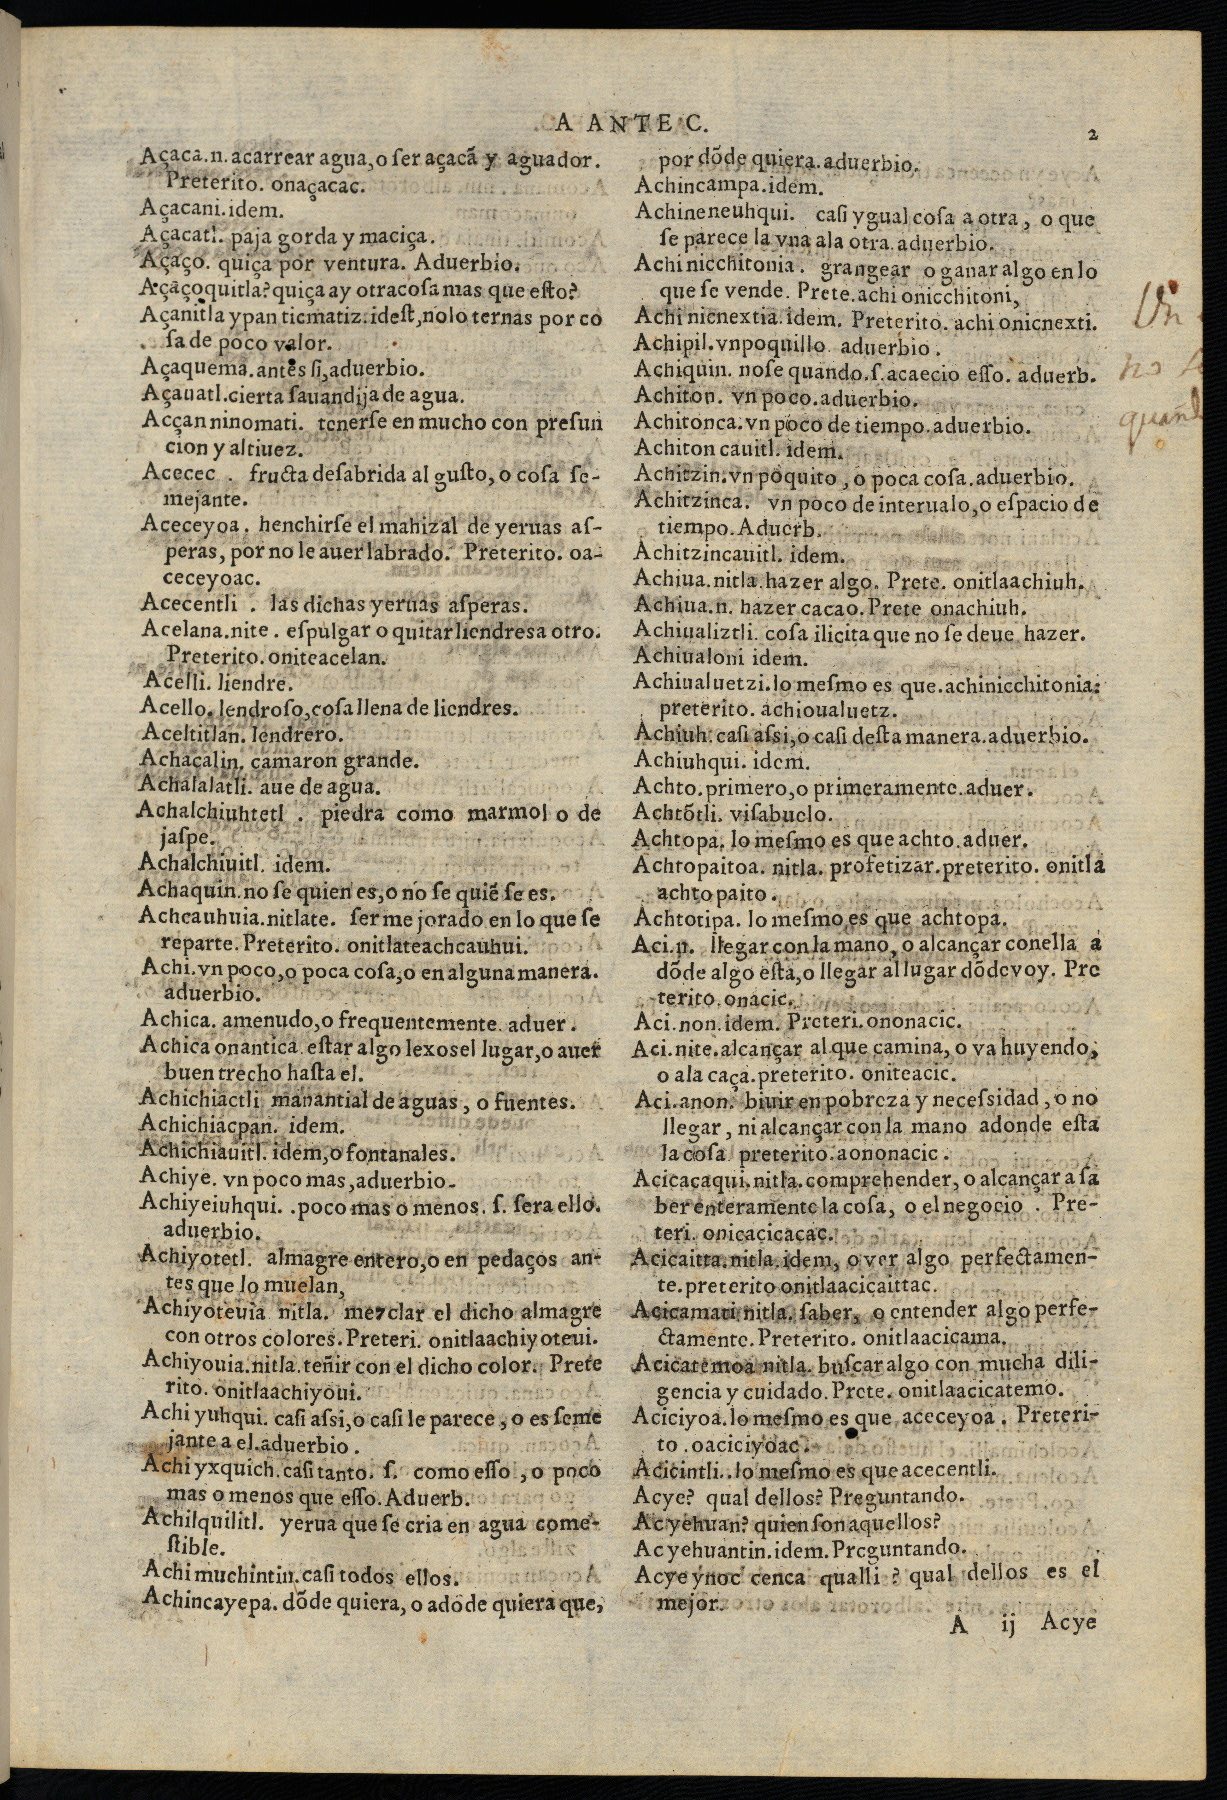 A ANTE C.
2
Açaca.n. acarrear agua, o ser açacã y aguador.
Preterito. onaçacac.
Açacani. idem.
Açacatl. paja gorda y maciça.
Açaço. quiça por ventura. Aduerbio.
Açaçoquitla? quiça ay otra cosa mas que esto?
Açanitla ypan ticmatiz. idest, nolo ternas por co
sa de poco valor.
Açaquema. antes si, aduerbio.
Açauatl. cierta sauandija de agua.
Acçan ninomati. tenerse en mucho con presun
cion y altiuez.
Acecec . fructa desabrida al gusto, o cosa se-
mejante.
Aceceyoa. henchirse el mahizal de yeruas as-
peras, por no le auer labrado. Preterito. oa-
ceceyoac.
Acecentli . las dichas yeruas asperas.
Acelana.nite. espulgar o quitar liendres a otro.
Preterito. oniteacelan.
Acelli. liendre.
Acello. lendroso, cosa llena de liendres.
Aceltitlan. lendrero.
Achacalin. camaron grande.
Achalalatli. aue de agua.
Achalchiuhtetl . piedra como marmol o de
jaspe.
Achalchiuitl. idem.
Achaquin. no se quien es, o no se quiẽ se es.
Achcauhuia.nitlate. ser mejorado en lo que se
reparte. Preterito. onitlateachcauhui.
Achi. vn poco, o poca cosa, o en alguna manera.
aduerbio.
Achica. amenudo, o frequentemente. aduer.
Achica onantica. estar algo lexos el lugar, o auer
buen trecho hasta el.
Achichiactli manantial de aguas, o fuentes.
Achichiacpan. idem.
Achichiauitl. idem, o fontanales.
Achiye. vn poco mas, aduerbio.
Achiyeiuhqui. .poco mas o menos. s. sera ello.
aduerbio.
Achiyotetl. almagre entero, o en pedaços an-
tes que lo muelan,
Achiyoteuia nitla. mezclar el dicho almagre
con otros colores. Preteri. onitlaachiyoteui.
Achiyouia.nitla. teñir con el dicho color. Prete
rito. onitlaachiyoui.
Achi yuhqui. casi assi, o casi le parece, o es seme
jante a el. aduerbio.
Achi yxquich. casi tanto. s. como esso, o poco
mas o menos que esso. Aduerb.
Achilquilitl. yerua que se cria en agua come-
stible.
Achi muchintin. casi todos ellos.
Achincayepa. dõde quiera, o adõde quiera que,
por dõde quiera. aduerbio.
Achincampa. idem.
Achineneuhqui. casi ygual cosa a otra, o que
se parece la vna ala otra. aduerbio.
Achi nicchitonia. grangear o ganar algo en lo
que se vende. Prete. achi onicchitoni,
Achi nicnextia. idem. Preterito. achi onicnexti.
Achipil. vn poquillo aduerbio.
Achiquin. no se quando. s. acaecio esso. aduerb.
Achiton. vn poco. aduerbio.
Achitonca. vn poco de tiempo. aduerbio.
Achiton cauitl. idem.
Achitzin. vn poquito, o poca cosa. aduerbio.
Achitzinca. vn poco de interualo, o espacio de
tiempo. Aduerb.
Achitzincauitl. idem.
Achiua.nitla. hazer algo. Prete. onitlaachiuh.
Achiua.n. hazer cacao. Prete onachiuh.
Achiualiztli. cosa ilicita que no se deue hazer.
Achiualoni idem.
Achiualuetzi. lo mesmo es que. achinicchitonia:
preterito. achioualuetz.
Achiuh. casi assi, o casi desta manera. aduerbio.
Achiuhqui. idem.
Achto. primero, o primeramente. aduer.
Achtõtli. visabuelo.
Achtopa. lo mesmo es que achto. aduer.
Achtopaitoa. nitla. profetizar. preterito. onitla
achtopaito.
Achtotipa. lo mesmo es que achtopa.
Aci.n. llegar con la mano, o alcançar con ella a
dõde algo esta, o llegar al lugar dõde voy. Pre
terito. onacic.
Aci.non. idem. Preteri. ononacic.
Aci.nite. alcançar al que camina, o va huyendo,
o ala caça. preterito. oniteacic.
Aci.anon. biuir en pobreza y necessidad, o no
llegar, ni alcançar con la mano adonde esta
la cosa. preterito. aononacic.
Acicacaqui.nitla. comprehender, o alcançar a sa
ber enteramente la cosa, o el negocio . Pre-
teri. onicacicacac.
Acicaitta.nitla. idem, o ver algo perfectamen-
te. preterito onitlaacicaittac.
Acicamati nitla. saber, o entender algo perfe-
ctamente. Preterito. onitlaacicama.
Acicatemoa nitla. buscar algo con mucha dili-
gencia y cuidado. Prete. onitlaacicatemo.
Aciciyoa. lo mesmo es que aceceyoa. Preteri-
to . oaciciyoac.
Acicintli. .lo mesmo es que acecentli.
Acye? qual dellos? Preguntando.
Ac yehuan? quien son aquellos?
Ac yehuantin. idem. Preguntando.
Acye ynoc cenca qualli ? qual dellos es el
mejor.
A ij Acye
no